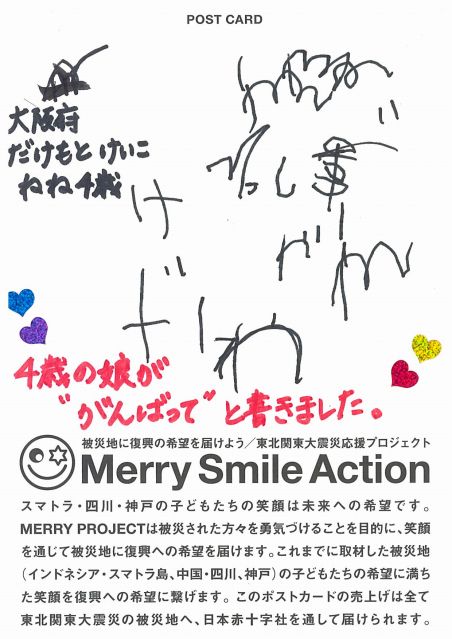 POST CARD
大阪府
だけもと けいこ
ねね 4歳
4歳の娘が
"がんばって"と書きました。
被災地に復興の希望を届けよう/東北関東大震災応援プロジェクト
Merry Smile Action
スマトラ・四川・神戸の子どもたちの笑顔は未来への希望です。
MERRY PROJECTは被災された方々を勇気づけることを目的に、笑顔
を通じて被災地に復興への希望を届けます。これまでに取材した被災地
(インドネシア・スマトラ島、中国・四川、神戸)の子どもたちの希望に満ち
た笑顔を復興への希望に繋げます。このポストカードの売上げは全て
東北関東大震災の被災地へ、日本赤十字社を通して届けられます。